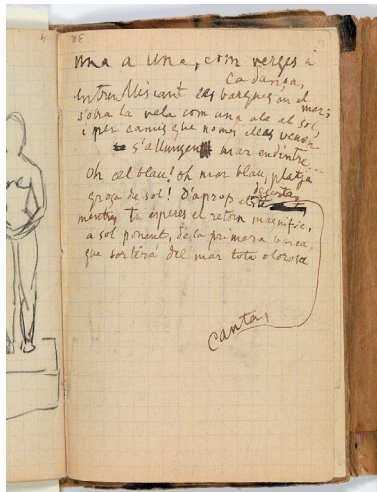 Una a una, com verges a
la dança,
entren lliscant les barques en el
mar;
s'obra la vela com una ala al sol,
i per camins que nomes elles veuen
s'allunyen mar endintre...
Oh cel blau! Oh mar blau, platja
deserta
groga de sol! D'aprop el
mentres tu esperes el retorn magnific,
a sol ponent, de la primera barca,
que sortirá del mar tota olorosa
canta,